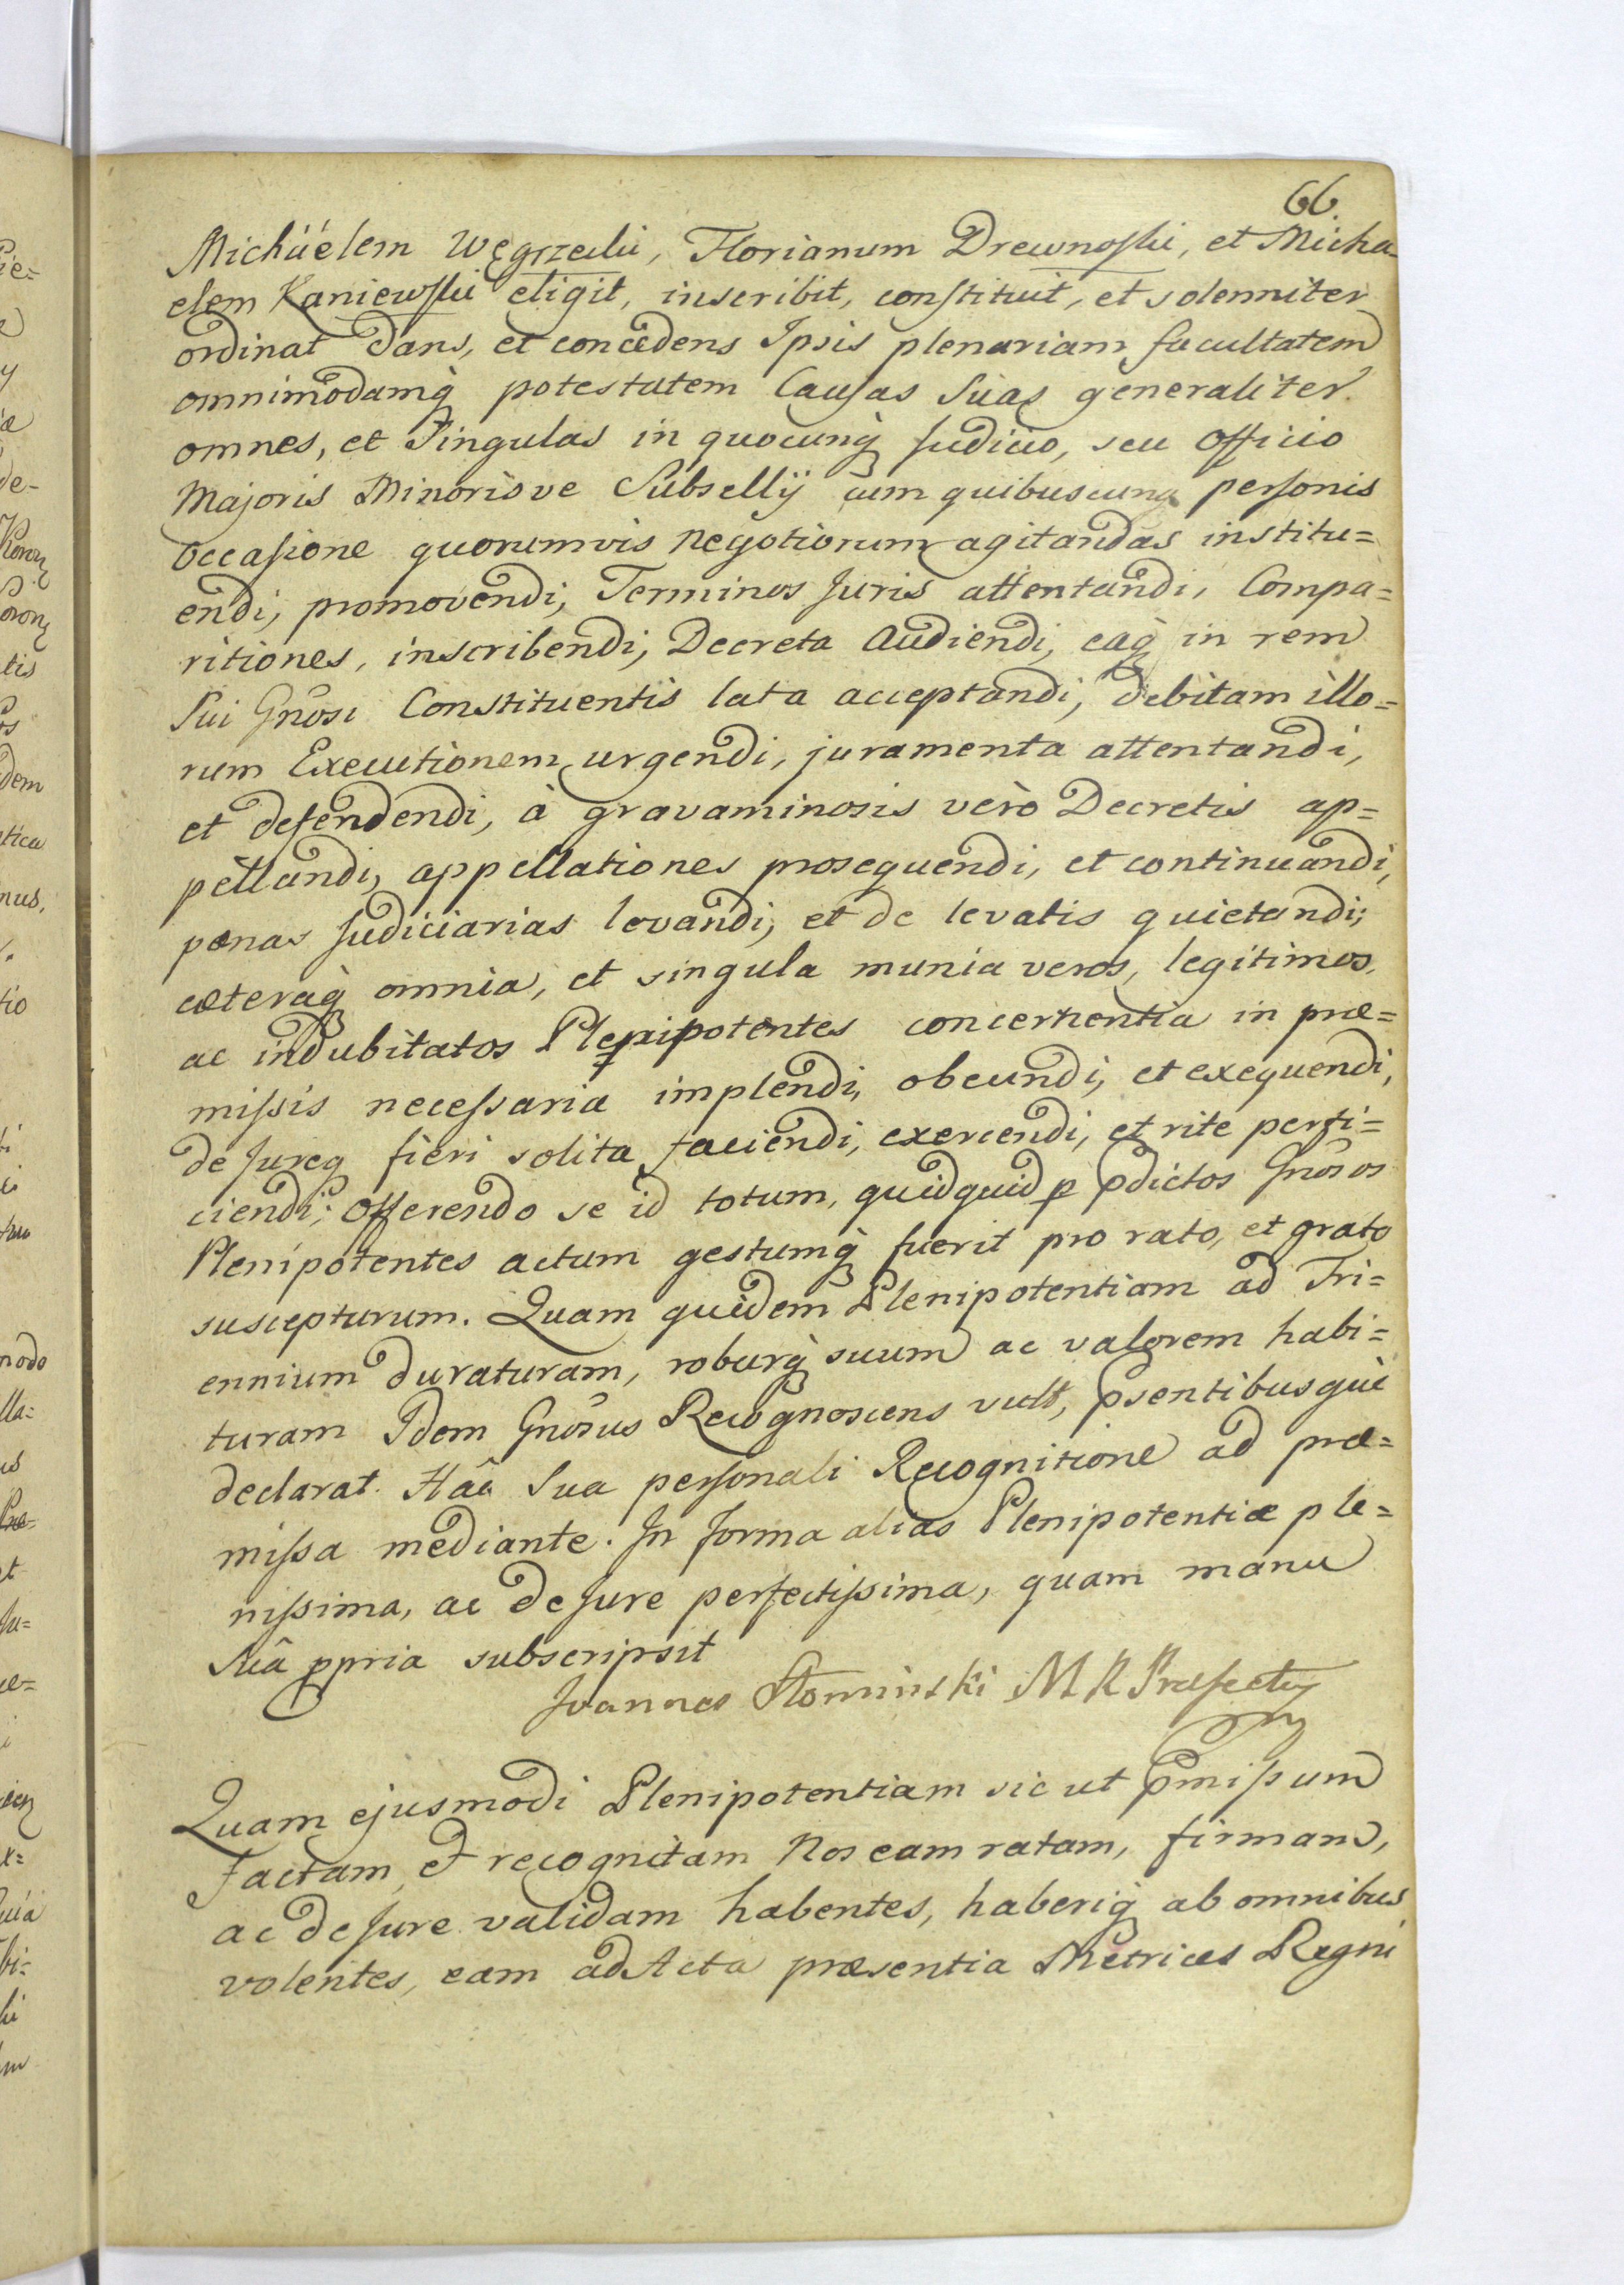 66.
Michäelem Węgrzecki, Florianum Drewnoſki, et Micha-
elem Kaniewſki eligit, inscribit, conſtituit, et solenniter
ordinat Dans, et concedens Ipsis plenariam facultatem
omnimodamq̀ potestatem Cauſas Suas generaliter
omnes, et Singulas in quocunq̀ Judicio, seu Officio
Majoris Minorisve Subsellij cum quibuscunq personis
occaſione quorumvis negotiorum agitandas institu=
endi, promovendi, Terminos Juris attentandi, Compa=
ritiones, inscribendi, Decreta Audiendi, eaq̀ in rem
Sui Gnõsi Constituentis lata acceptandi, debitam illo=
rum Executionem urgendi, juramenta attentandi,
et defendendi, à gravaminosis verò Decretis ap=
pellandi, appellationes prosequendi, et continuandi,
pœnas Judiciarias levandi, et de levatis quietandi;
cæteraq̀ omnia, et singula munia veros, legitimos,
ac indubitatos Plenipotentes concernentia in præ=
miſsis neceſsaria implendi, obeundi, et exequendi,
de Jureq fieri solita faciendi, exercendi, et rite perfi=
ciendi; Offerendo se id totum, quidquid p pdictos Gnõsos
Plenipotentes actum gestumq̀ fuerit pro rato, et grato
suscepturum. Quam quidem Plenipotentiam ad Tri=
ennium duraturam, roburq̀ suum ac valorem habi=
turam Idem Gnõsus Recognoscens vult, psentibusquè
declarat. Hâc Sua perſonali Recognitione ad præ=
miſsa mediante. In forma alias Plenipotentiæ ple=
niſsima, ac de Jure perfectiſsima, quam manu
Suâ ppria subscripsit
Joannes Słomiński M R Præfectus
mp
Quam ejusmodi Plenipotentiam sic ut pmiſsum
Factam, et recognitam Nos eam ratam, firmam,
ac de Jure validam habentes, haberiq̀ ab omnibus
volentes, eam ad Acta præsentia Metrices Regni